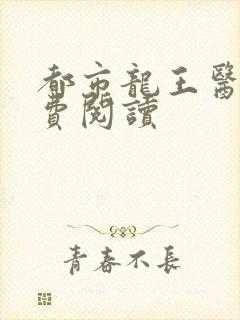 都市龍王醫
費閱讀
青春不長